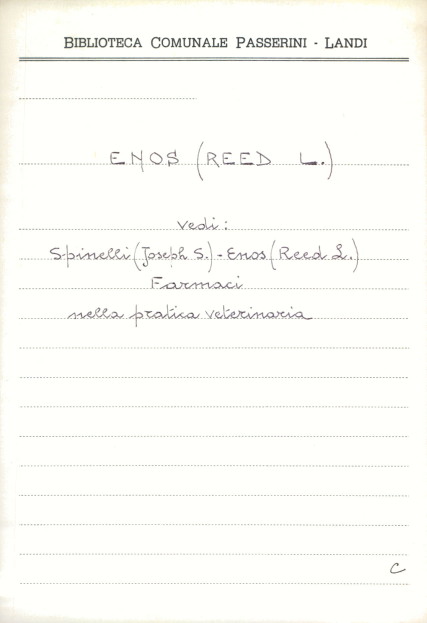 BIBLIOTECA COMUNALE PASSERINI - LANDI
ENOS (REED L.)
vedi:
Spinelli (Joseph S.) - Enos (Reed L.)
Farmaci
nella pratica veterinaria
C